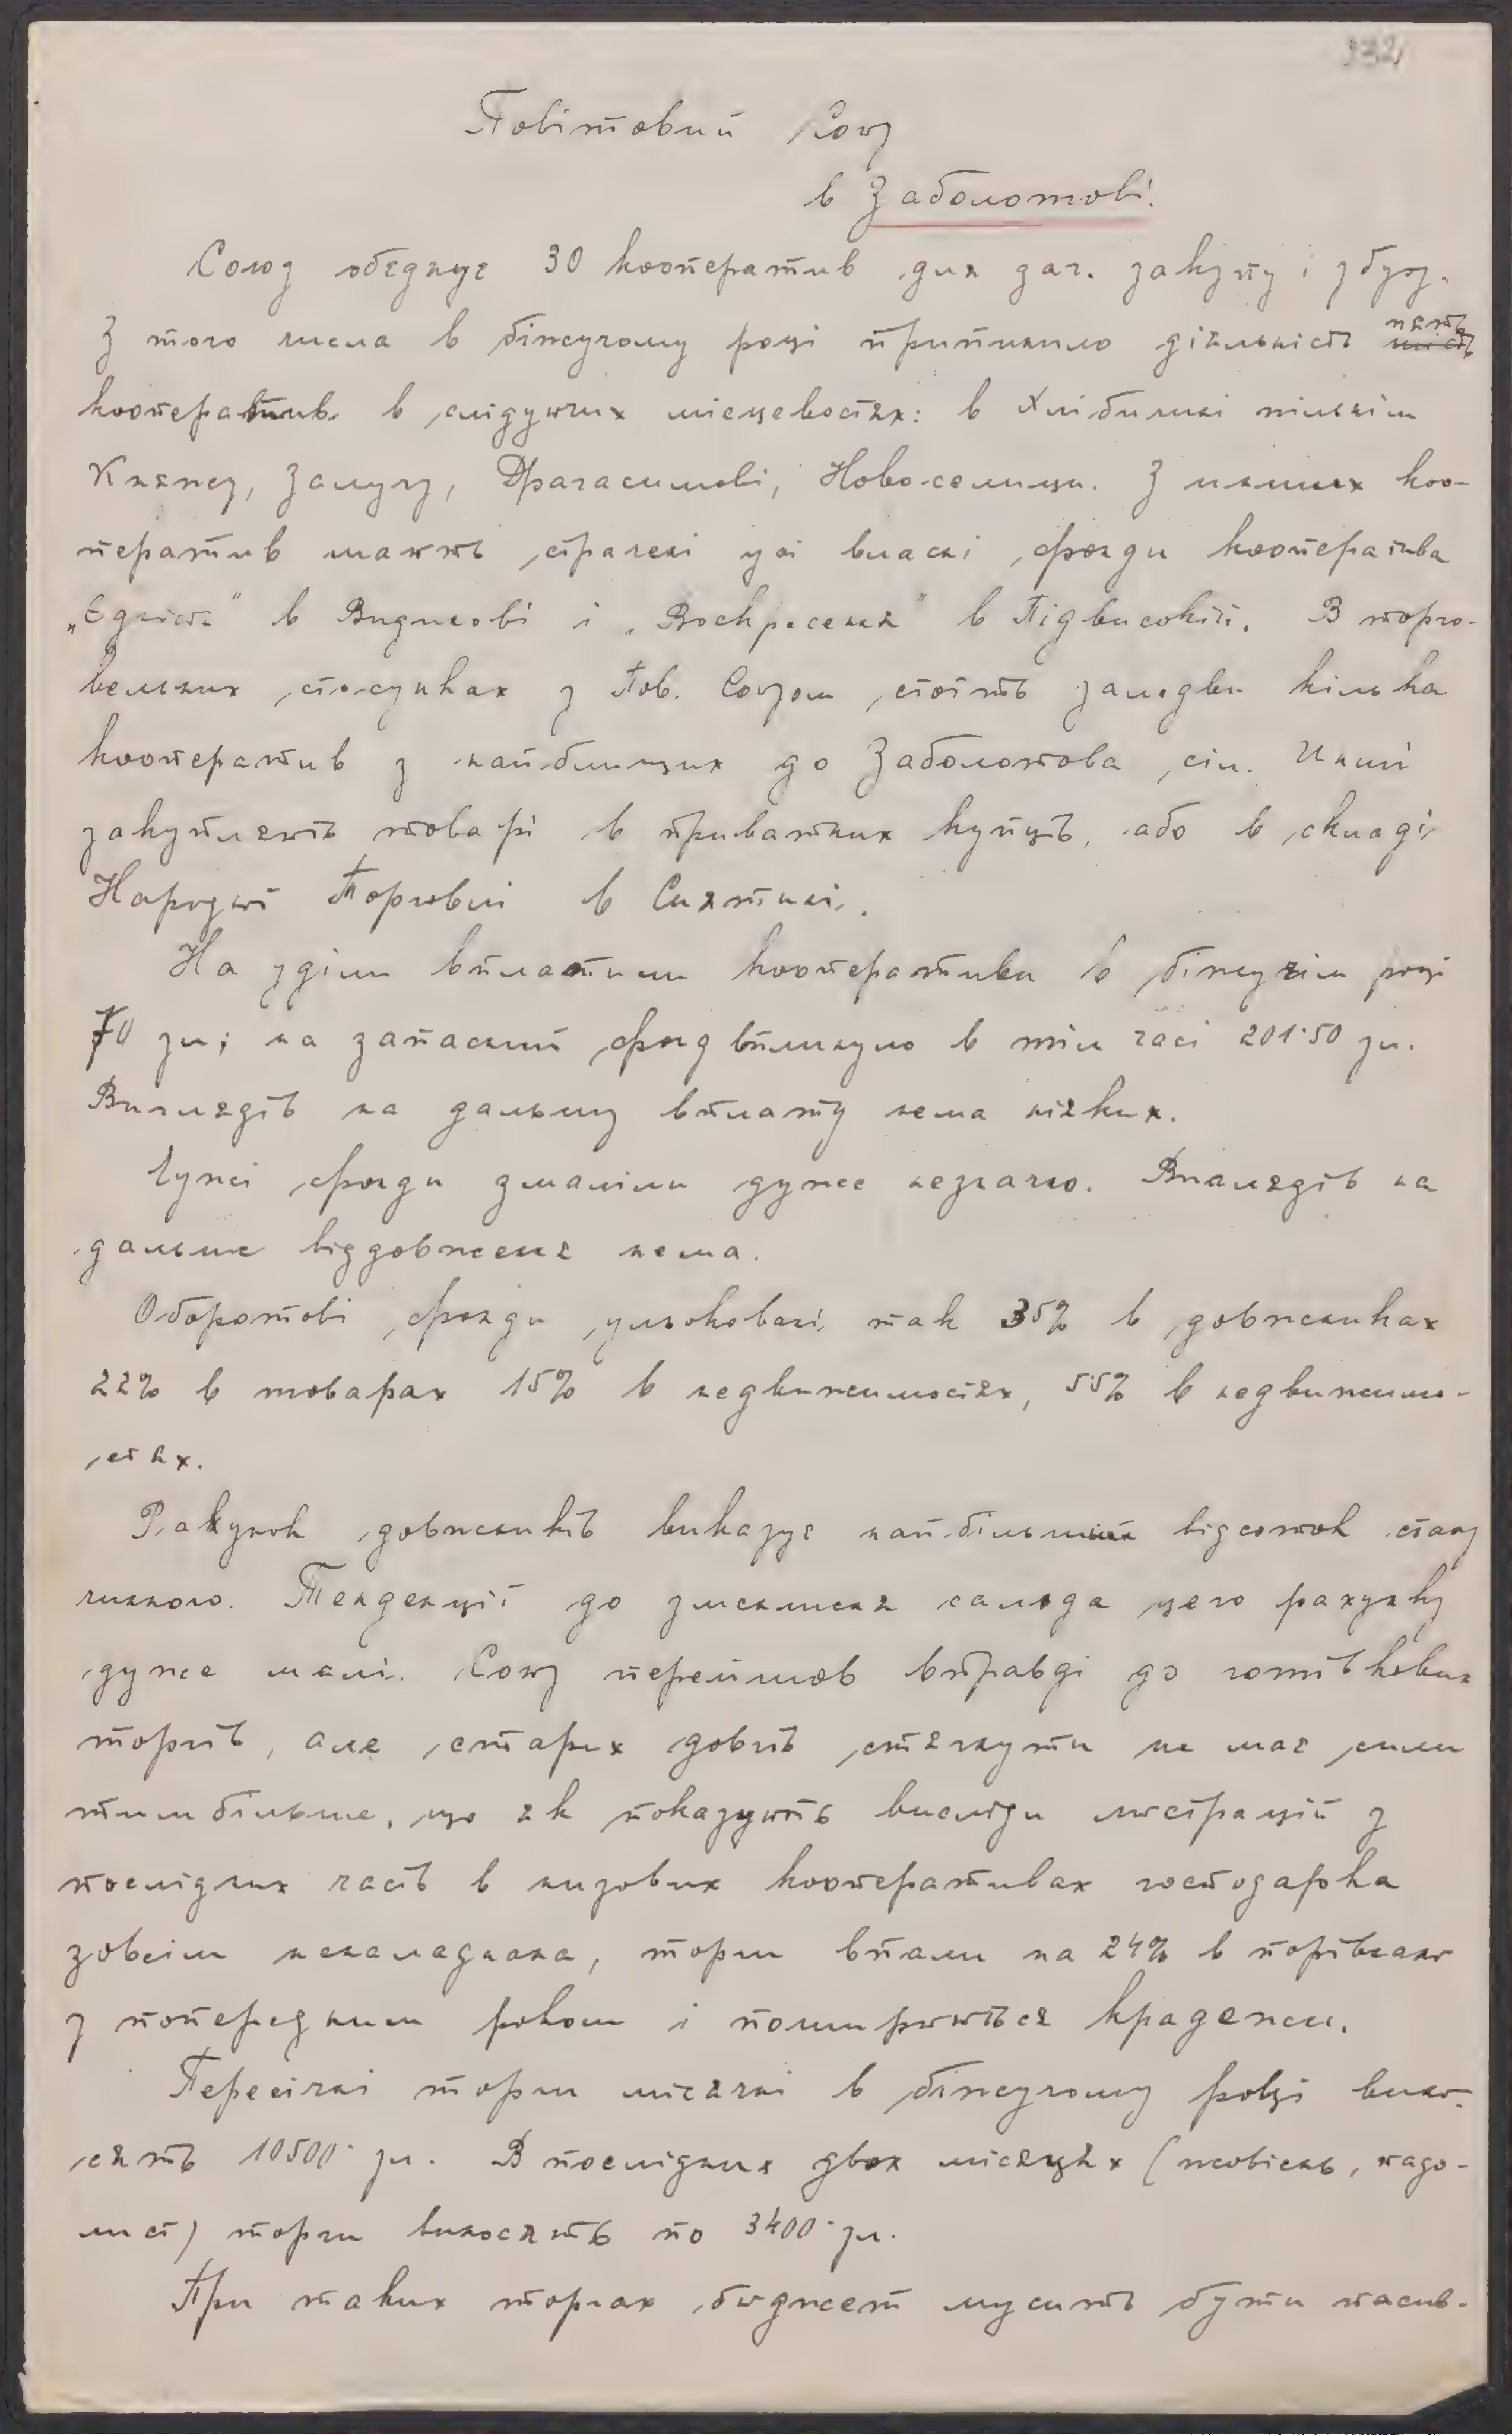 Повітовий Союз
в Заболотові.
Союз обєднує 30 кооператив для заг. закупу і збуту.
З того числа в біжучому році припинило діяльність пять
кооператив в слідуючих місцевостях: в Хлібичині пільнім
Княжу, Залучу, Драгасимові, Новоселици. З инших коо-
ператив мають страчені усі власні фонди кооператива
„Єдність" в Видинові і „Воскресення" в Підвисокій. В торго-
вельних стосунках з Пов. Союзом стоїть заледви кілька
кооператив з найблищих до Заболотова сіл. Инші
закупляють товарі в приватних купців, або в складі
Народної Торговлі в Снятині.
На уділи вплатили кооперативи в біжучім році
70 зл; на запасний фонд вплинуло в тім часі 201·50 зл.
Виглядів на дальшу вплату нема ніяких.
Чужі фонди змаліли дуже незначно. Виглядів на
дальше віддовження нема.
Оборотові фонди ульоковані так 35% в довжниках
22% в товарах 15% в недвижимостях, 55% в недвижимо-
стях.
Рахунок довжників виказує найбільший відсоток стану
чинного. Тенденції до зменшеня сальда цего рахунку
дуже малі. Союз перейшов вправді до готівкових
торгів, але старих довгів стягнути не має сили
тим більше, що як показують висліди люстрацій з
послідних часів в низових кооперативах господарка
зовсім неналадняна, торги впали на 24% в порівнаню
з попередним роком і поширюються крадежи.
Пересічні торги місячні в біжучому році вино-
сять 10500· зл. В послідних двох місяцях (жовтень, падо-
лист) торги виносять по 3400·зл.
При таких торгах бюджет мусить бути пасив-